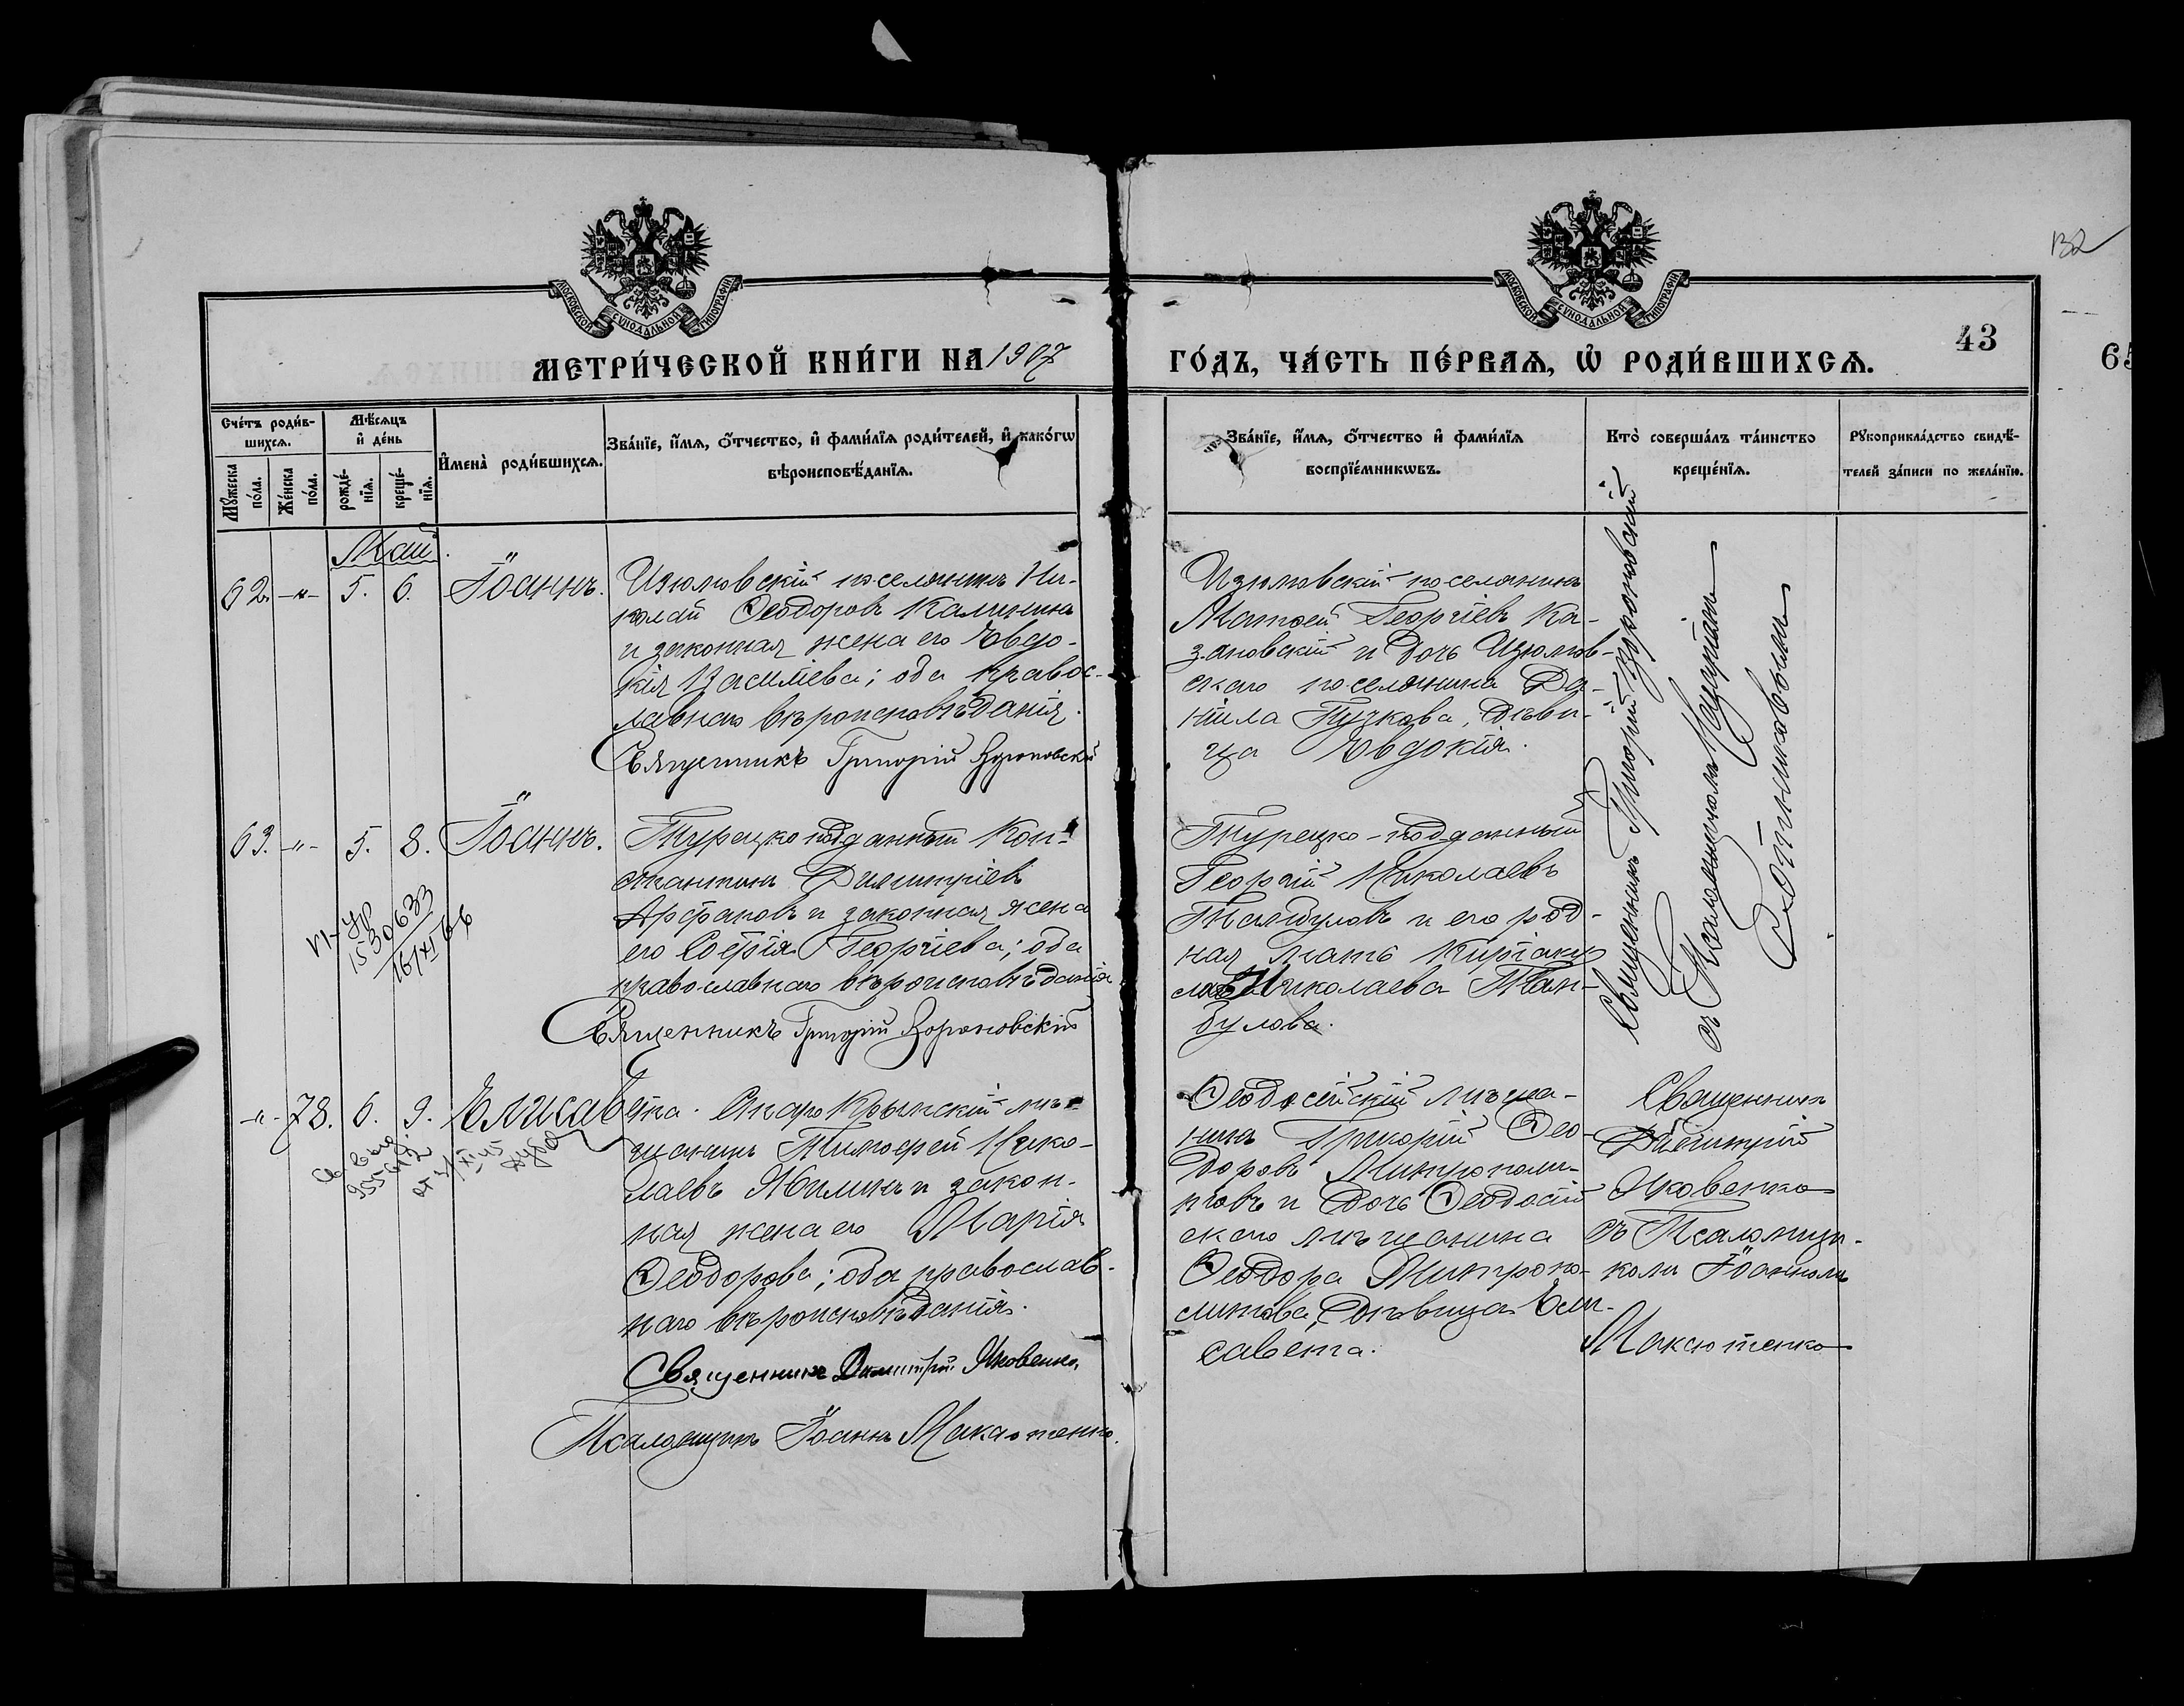 132
МОСКОВСКОЙ СѴНОДАЛЬНОЙ ТИПОГРАФІИ
МОСКОВСКОЙ СѴНОДАЛЬНОЙ ТИПОГРАФІИ
43
65
МЕТРИ́ЧЕСКОЙ КНИ́ГИ НА 1907
ГО́ДЪ, ЧА́СТЬ ПЕ́РВАѦ, Ѡ҆ РОДИ́ВШИХСѦ.
Сче́тъ роди́в-
шихсѧ.
Мꙋ́жеска по́ла.
Же́нска по́ла.
Мѣ́сѧцъ
и҆ де́нь
рожде́-
нїѧ.
креще́-
нїѧ.
И҆мена̀ роди́вшихсѧ.
Зва́нїе, и҆́мѧ, ѻ҆́тчество, и҆ фами́лїѧ роди́телей, и҆ како́гѡ
вѣроисповѣ́данїѧ.
Зва́нїе, и҆́мѧ, ѻ҆́тчество и҆ фами́лїѧ
воспрїе́мникѡвъ.
Кто̀ соверша́лъ та́инство
креще́нїѧ.
Рꙋкоприкла́дство свидѣ́-
телей за́писи по жела́нїю.
Май.
62. -"- 5. 6. Іоаннъ.
Изюмовскій поселянинъ Ни-
колай Ѳеодоровъ Калининъ
и законная жена его Евдо-
кія Василіева; оба правос-
лавнаго вѣроисповѣданія.
Священникъ Григорій
Изюмовскій поселянинъ
Матѳей Георгіевъ Ка-
зановскій и дочь Изюмов-
скаго поселянина Да-
ніила Пучкова, дѣви-
ца Евдокія.
Священникъ Григорій
съ Псаломщикомъ
63. -"- 5. 8. Іоаннъ.
Турецко подданный Кон-
стантинъ Димитріевъ
и законная жена
его Софія Георгіева; оба
православнаго вѣроисповѣданія
Священникъ Григорій
1530633
16/XI 66
Турецко-подданный
Георгій Николаевъ
и его род-
ная мать
Николаева Тан-
булова.
-"- 78. 6. 9. Елисавета.
955612
Старо Крымскій мѣ-
щанинъ Тимоѳей Нико-
лаевъ и закон-
ная жена его Марія
Ѳеодорова; оба православ-
наго вѣроисповѣданія.
Священникъ Димитрій Яковенко
Псаломщикъ Іоаннъ Максютенко.
Ѳеодосійскій мѣща-
нинъ Григорій Ѳео-
доровъ
и дочь Ѳеодосій
скаго мѣщанина
Ѳеодора
дѣвица Ели-
савета.
Священникъ
Димитрій
Яковенко
съ Псаломщи-
комъ Іоанномъ
Максютенко